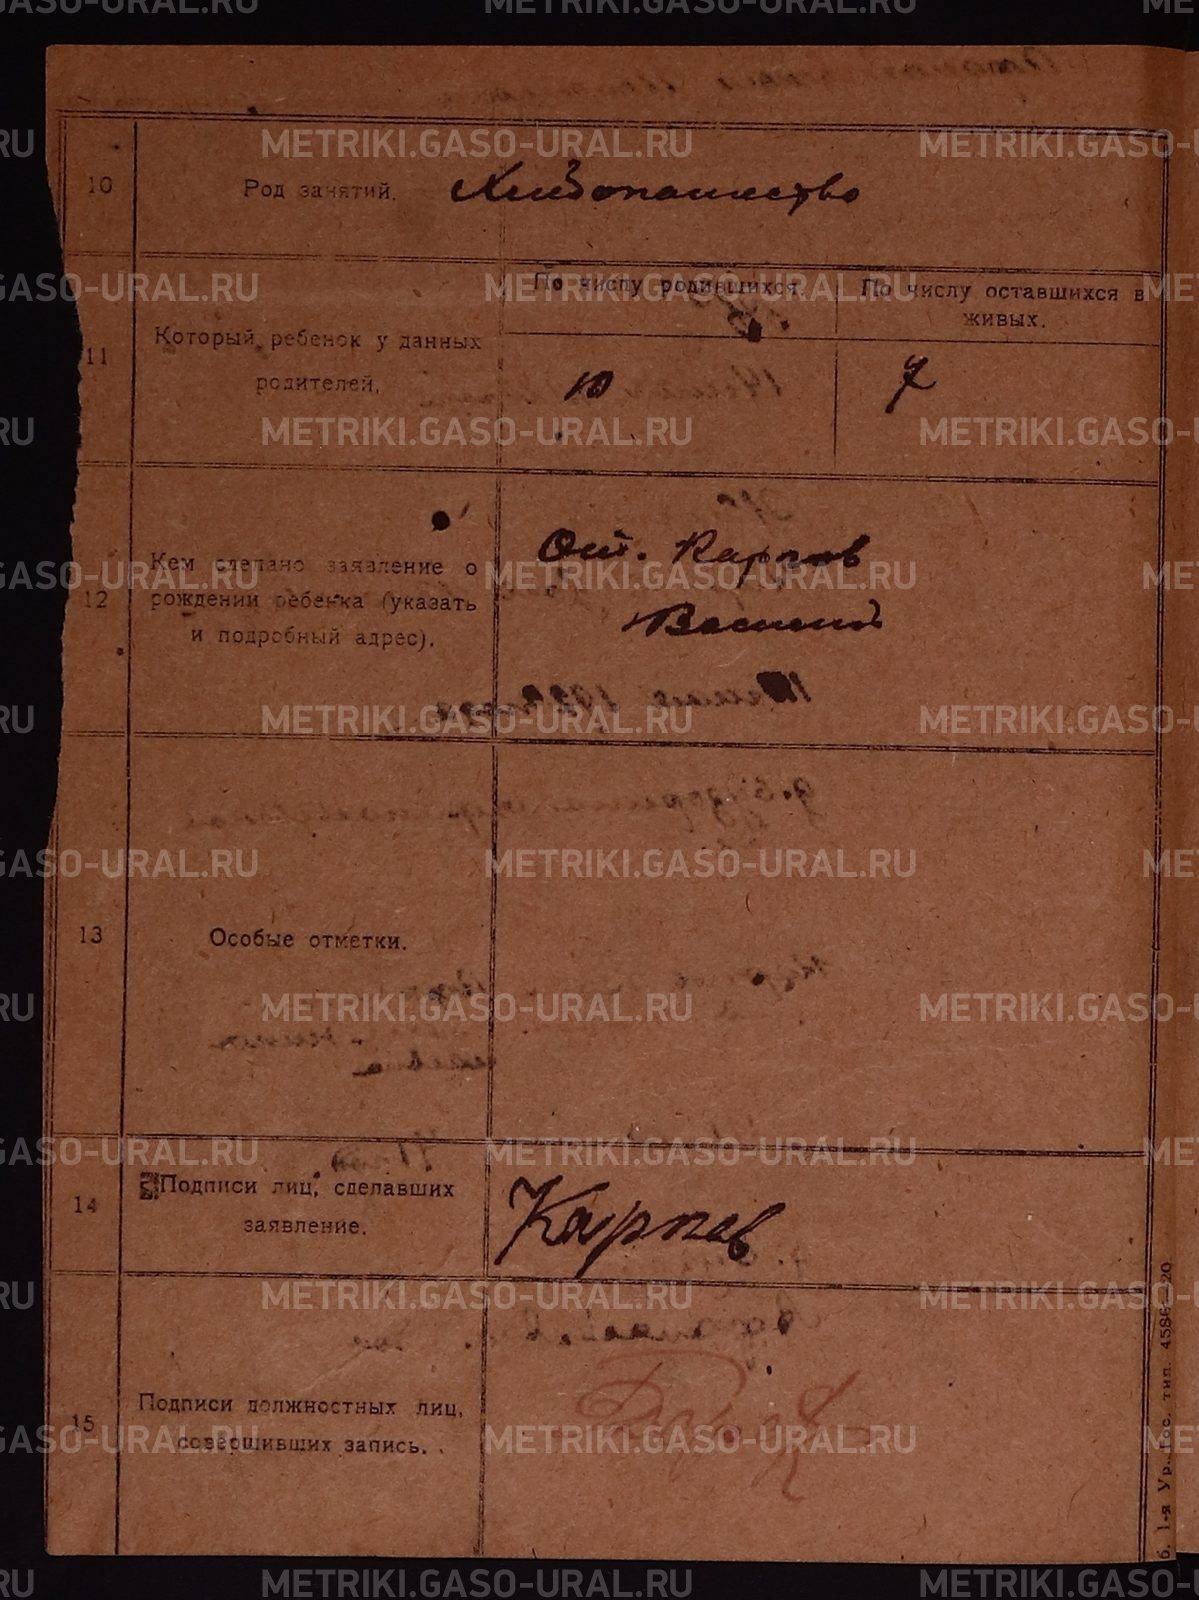 METRIKI.GASO-URAL.RU
10
Род занятий.
Хлебопашество
11
Который ребенок у данных
родителей.
По числу родившихся.
По числу оставшихся в
живых.
10
7
12
Кем сделано заявление о
рождении ребенка (указать
и подробный адрес).
От. Карпов
Василий
13
Особые отметки.
14
Подписи лиц, сделавших
заявление.
Карпов
15
Подписи должностных лиц,
совершивших запись.
1-я Ур. Гос. тип. 4586—20